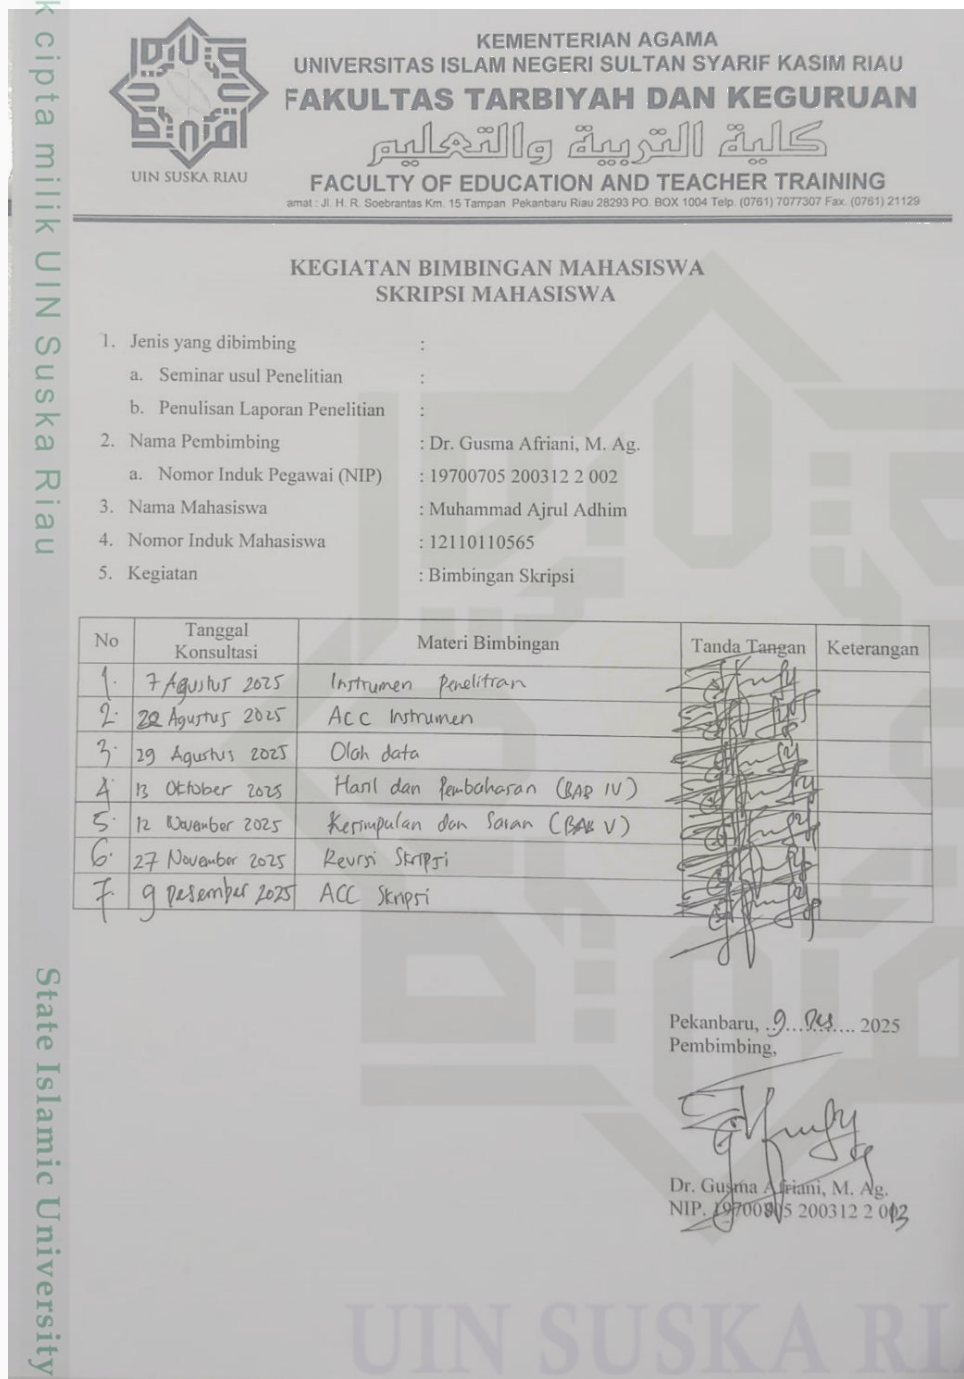 k cipta milik UIN Suska Riau
State Islamic University
UIN SUSKA RIAU
KEMENTERIAN AGAMA
UNIVERSITAS ISLAM NEGERI SULTAN SYARIF KASIM RIAU
FAKULTAS TARBIYAH DAN KEGURUAN
كلية التربية والتعليم
FACULTY OF EDUCATION AND TEACHER TRAINING
amat : Jl. H. R. Soebrantas Km. 15 Tampan Pekanbaru Riau 28293 PO. BOX 1004 Telp. (0761) 7077307 Fax. (0761) 21129
KEGIATAN BIMBINGAN MAHASISWA
SKRIPSI MAHASISWA
1. Jenis yang dibimbing :
a. Seminar usul Penelitian :
b. Penulisan Laporan Penelitian :
2. Nama Pembimbing : Dr. Gusma Afriani, M. Ag.
a. Nomor Induk Pegawai (NIP) : 19700705 200312 2 002
3. Nama Mahasiswa : Muhammad Ajrul Adhim
4. Nomor Induk Mahasiswa : 12110110565
5. Kegiatan : Bimbingan Skripsi
No Tanggal Konsultasi Materi Bimbingan Tanda Tangan Keterangan
1. 7 Agustus 2025 Instrumen Penelitian
2. 22 Agustus 2025 ACC Instrumen
3. 29 Agustus 2025 Olah data
4 13 Oktober 2025 Hasil dan Pembahasan (BAB IV)
5. 12 November 2025 Kesimpulan dan Saran (BAB V)
6. 27 November 2025 Revisi Skripsi
7. 9 Desember 2025 ACC Skripsi
Pekanbaru, 9 Des 2025
Pembimbing,
Dr. Gusma Afriani, M. Ag.
NIP. 200312 2
UIN SUSKA RI